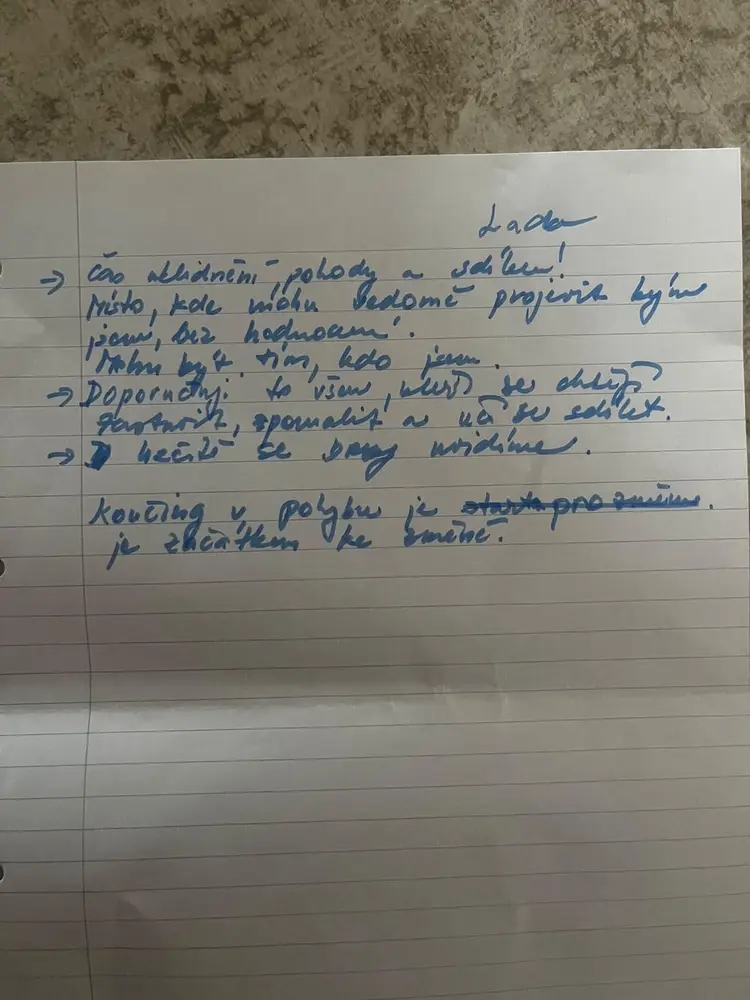 Lada
→ čas uklidnění, pohody a sdílení!
Místo, kde mohu vědomě projevit kým
jsem, bez hodnocení.
Mohu být tím, kdo jsem.
→ Doporučuji to všem, kteří se chtějí
zastavit, zpomalit a učí se sdílet.
→ těším se brzy uvidíme.
Koučing v pohybu je pro změnu.
je začátkem ke změně.